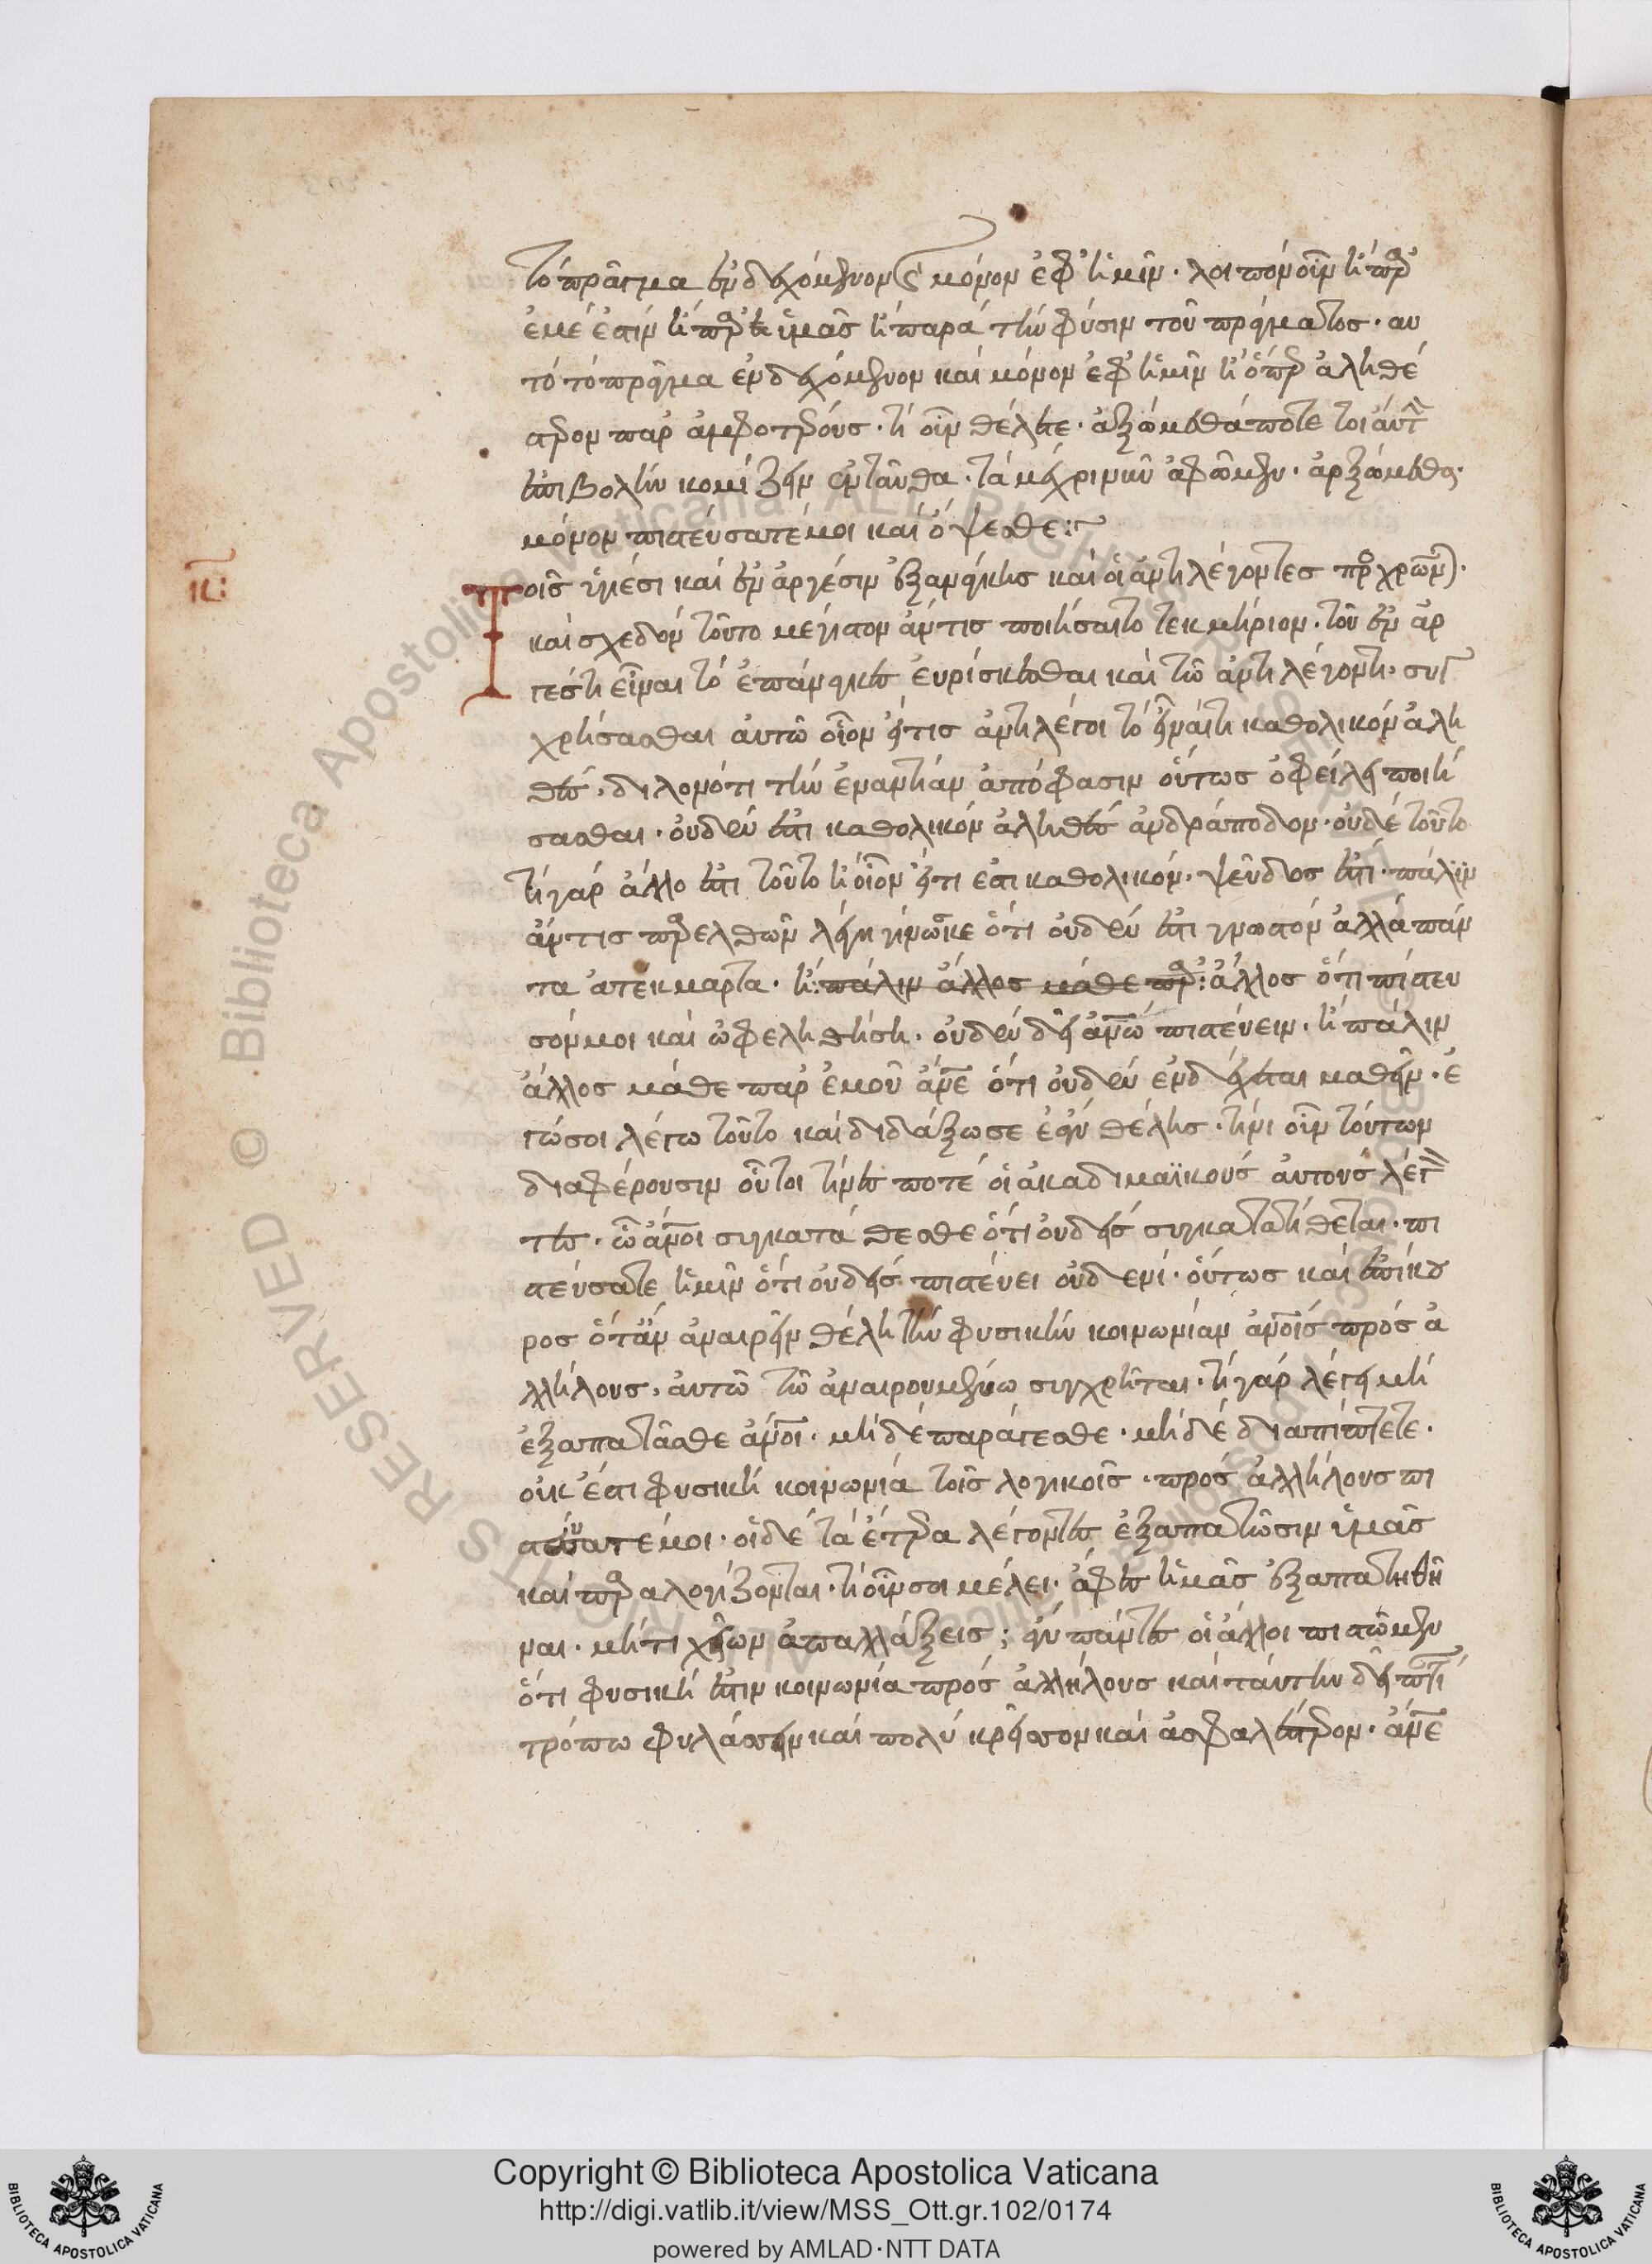 τὸ πρᾶγμα ἐνδεχόμενον καὶ μόνον ἐφ' ἡμῖν. λοιπὸν οὖν ἢ παρ'
ἐμέ ἐστὶν ἢ παρ' ὑμᾶς ἢ παρὰ τὴν φύσιν τοῦ πράγματος. αυ
τὸ τὸ πρᾶγμα ἐνδεχόμενον καὶ μόνον ἐφ' ἡμῖν ἢ ὅπερ ἀληθέ
στερον παρ' ἀμφοτέρους. τί οὖν θέλετε. ἀρξώμεθά ποτε τοιάυτην
ἐπιβολὴν κομίζειν ἐνταῦθα. τὰ μέχρι νῦν ἀφῶμεν. ἀρξώμεθα.
μόνον πιστεύσατέ μοι καὶ ὄψεσθε:
Τοῖς ὑγιέσι καὶ ἐναργέσιν ἐξανάγκης καὶ οἱ ἀντιλέγοντες προσχρῶνται.
καὶ σχεδὸν τοῦτο μέγιστον ἄν τις ποιήσαιτο τεκμήριον. τοῦ ἐναρ
γές τι εἶναι τὸ ἐπάναγκες ἑυρίσκεσθαι καὶ τῶ ἀντιλέγοντι. συγ
χρήσασθαι ἀυτῶ οἷον εἴ τις ἀντιλέγοι τὸ εἶναί τι καθολικὸν ἀλη
θές. δηλονότι τὴν ἐναντίαν ἀπόφασιν οὕτως ὀφείλει ποιή
σασθαι. ὀυδέν ἐστι καθολικὸν ἀληθὲς ἀνδράποδον. ὀυδὲ τοῦτο
τί γὰρ ἄλλο ἐστὶ τοῦτο ἢ οἷον εἴ τι ἐστι καθολικόν. ψεῦδος ἐστί. πάλιν
ἄν τις παρελθὼν λέγη γίνωσκε ὅτι ὀυδέν ἐστι γνωστὸν ἀλλὰ πάν
τα ἀτέκμαρτα. ἢ: πάλιν ἄλλος μάθε παρ': ἄλλος ὅτι πίστευ
σόν μοι καὶ ὠφεληθήση. ὀυδὲν δεῖ ἀνθρώπω πιστέυειν. ἢ πάλιν
ἄλλος μάθε παρ' ἐμοῦ ἄνθρωπε ὅτι ὀυδὲν ἐνδέχεται μαθεῖν. ἐ
γώ σοι λέγω τοῦτο καὶ διδάξω σε ἐὰν θέλης. τίνι οὖν τούτων
διαφέρουσιν οὗτοι τίνες ποτέ οἱ ἀκαδημαϊκοὺς ἀυτοὺς λέγον
τες. ὦ ἄνθρωποι συγκατάθεσθε ὅτι ὀυδεὶς συγκατατίθεται. πι
στεύσατε ἡμῖν ὅτι ὀυδεὶς πιστέυει ὀυδενί. ὅυτως καὶ ἐπίκου
ρος ὅταν ἀναιρεῖν θέλη τὴν φυσικὴν κοινωνίαν ἀνθρώποις πρὸς ἀ
λλήλους. ἀυτῶ τῶ ἀναιρουμένω συγχρῆται. τί γὰρ λέγει μὴ
ἐξαπατᾶσθε ἄνθρωποι. μὴ δὲ παράγεσθε. μὴ δὲ διαπίπτετε.
οὐκ ἔστι φυσικὴ κοινωνία τοῖς λογικοῖς. προς ἀλλήλους πι
στεύσατέ μοι. οἱ δὲ τὰ ἕτερα λέγοντες ἐξαπατῶσιν ὑμᾶς
καὶ παραλογίζονται. τί οὖν σοι μέλει. ἄφες ἡμᾶς ἐξαπατηθῆ
ναι. μή τι χεῖρον ἀπαλλάξεις; ἂν πάντες οἱ ἄλλοι πιστῶμεν
ὅτι φυσική ἐστιν κοινωνία πρὸς ἀλλήλους καὶ ταύτην δεῖ παντὶ
τρόπω φυλάσσειν καὶ πολὺ κρεῖσσον καὶ ἀσφαλέστερον. ἄνθρωπε
Copyright © Biblioteca Apostolica Vaticana
http://digi.vatlib.it/view/MSS_Ott.gr.102/0174
powered by AMLAD·NTT DATA